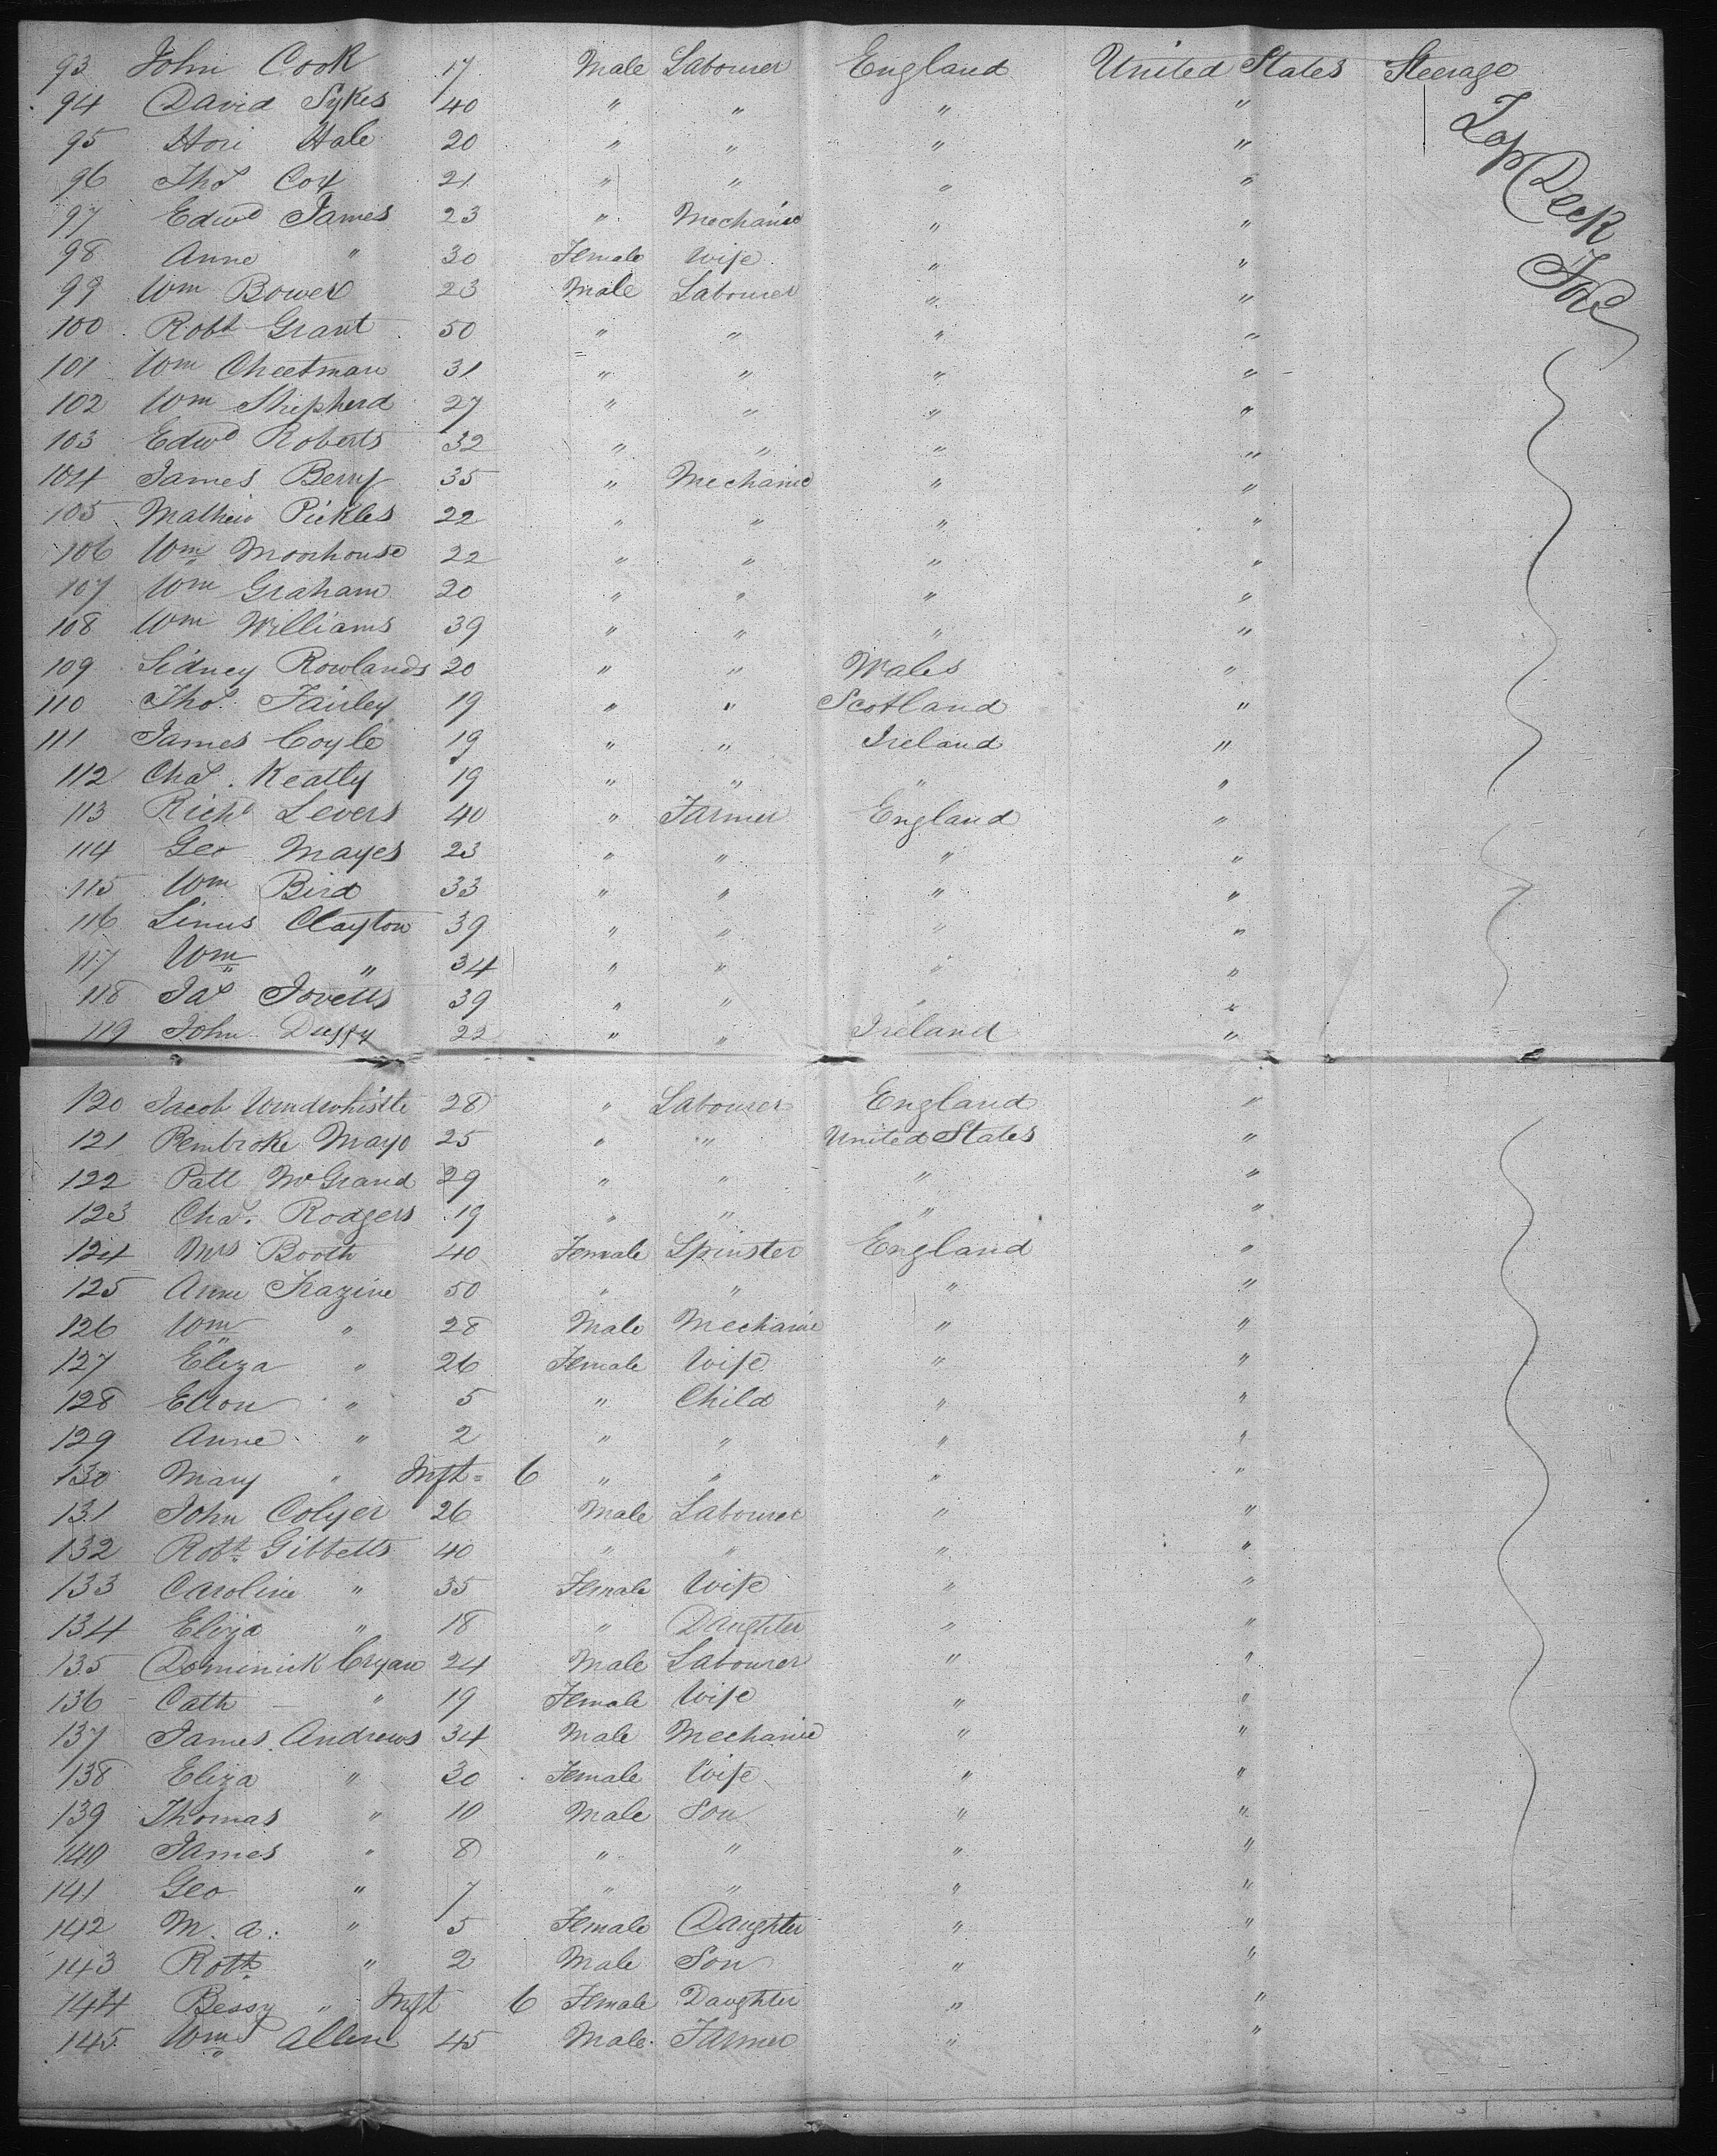 93 John Cook 17 Male Labourer England United States Steerage
94 David Sykes 40 " " " " Top Deck
95 Hale 20 " " " "
96 Thos Cox 21 " " " "
97 Edwd James 23 " Mechanic " "
98 Anne " 30 Female Wife " "
99 Wm Bower 23 Male Labourer " "
100 Robt Grant 50 " " " "
101 Wm Cheetman 31 " " " "
102 Wm Shepherd 27 " " " "
103 Edwd Roberts 32 " " " "
104 James Berry 35 " Mechanic " "
105 Mathew Pickles 22 " " " "
106 Wm Moorhouse 22 " " " "
107 Wm Graham 20 " " " "
108 Wm Williams 39 " " " "
109 Sidney Rowlands 20 " " Wales "
110 Thos Fairley 19 " " Scotland "
111 James Coyle 19 " " Ireland "
112 Chas. Keatly 19 " " " "
113 Richd Levers 40 " Farmer England "
114 Geo Mayes 23 " " " "
115 Wm Bird 33 " " " "
116 Linus Clayton 39 " " " "
117 Wm " 34 " " " "
118 Jas 39 " " " "
119 John Duffy 22 " " Ireland "
120 Jacob 28 " Labourer England "
121 Pembroke Mayo 25 " " United States "
122 Patt McGrand 29 " " " "
123 Chas. Rodgers 19 " " " "
124 Mrs Booth 40 Female Spinster England "
125 Anne Frazine 50 " " " "
126 Wm " 28 Male Mechanic " "
127 Eliza " 26 Female Wife " "
128 " 5 " Child " "
129 Anne " 2 " " " "
130 Mary " Inft 6 " " " "
131 John Colyer 26 Male Labourer " "
132 Robt Gibbetts 40 " " " "
133 Caroline " 35 Female Wife " "
134 Eliza " 18 " Daughter " "
135 Dominick Cryan 24 Male Labourer " "
136 Cath " 19 Female Wife " "
137 James Andrews 34 Male Mechanic " "
138 Eliza " 30 Female Wife " "
139 Thomas " 10 Male Son " "
140 James " 8 " " " "
141 Geo " 7 " " " "
142 M. a. " 5 Female Daughter " "
143 Robt " 2 Male Son " "
144 Bessy " Inft 6 Female Daughter " "
145 Wm Allen 45 Male Farmer " "